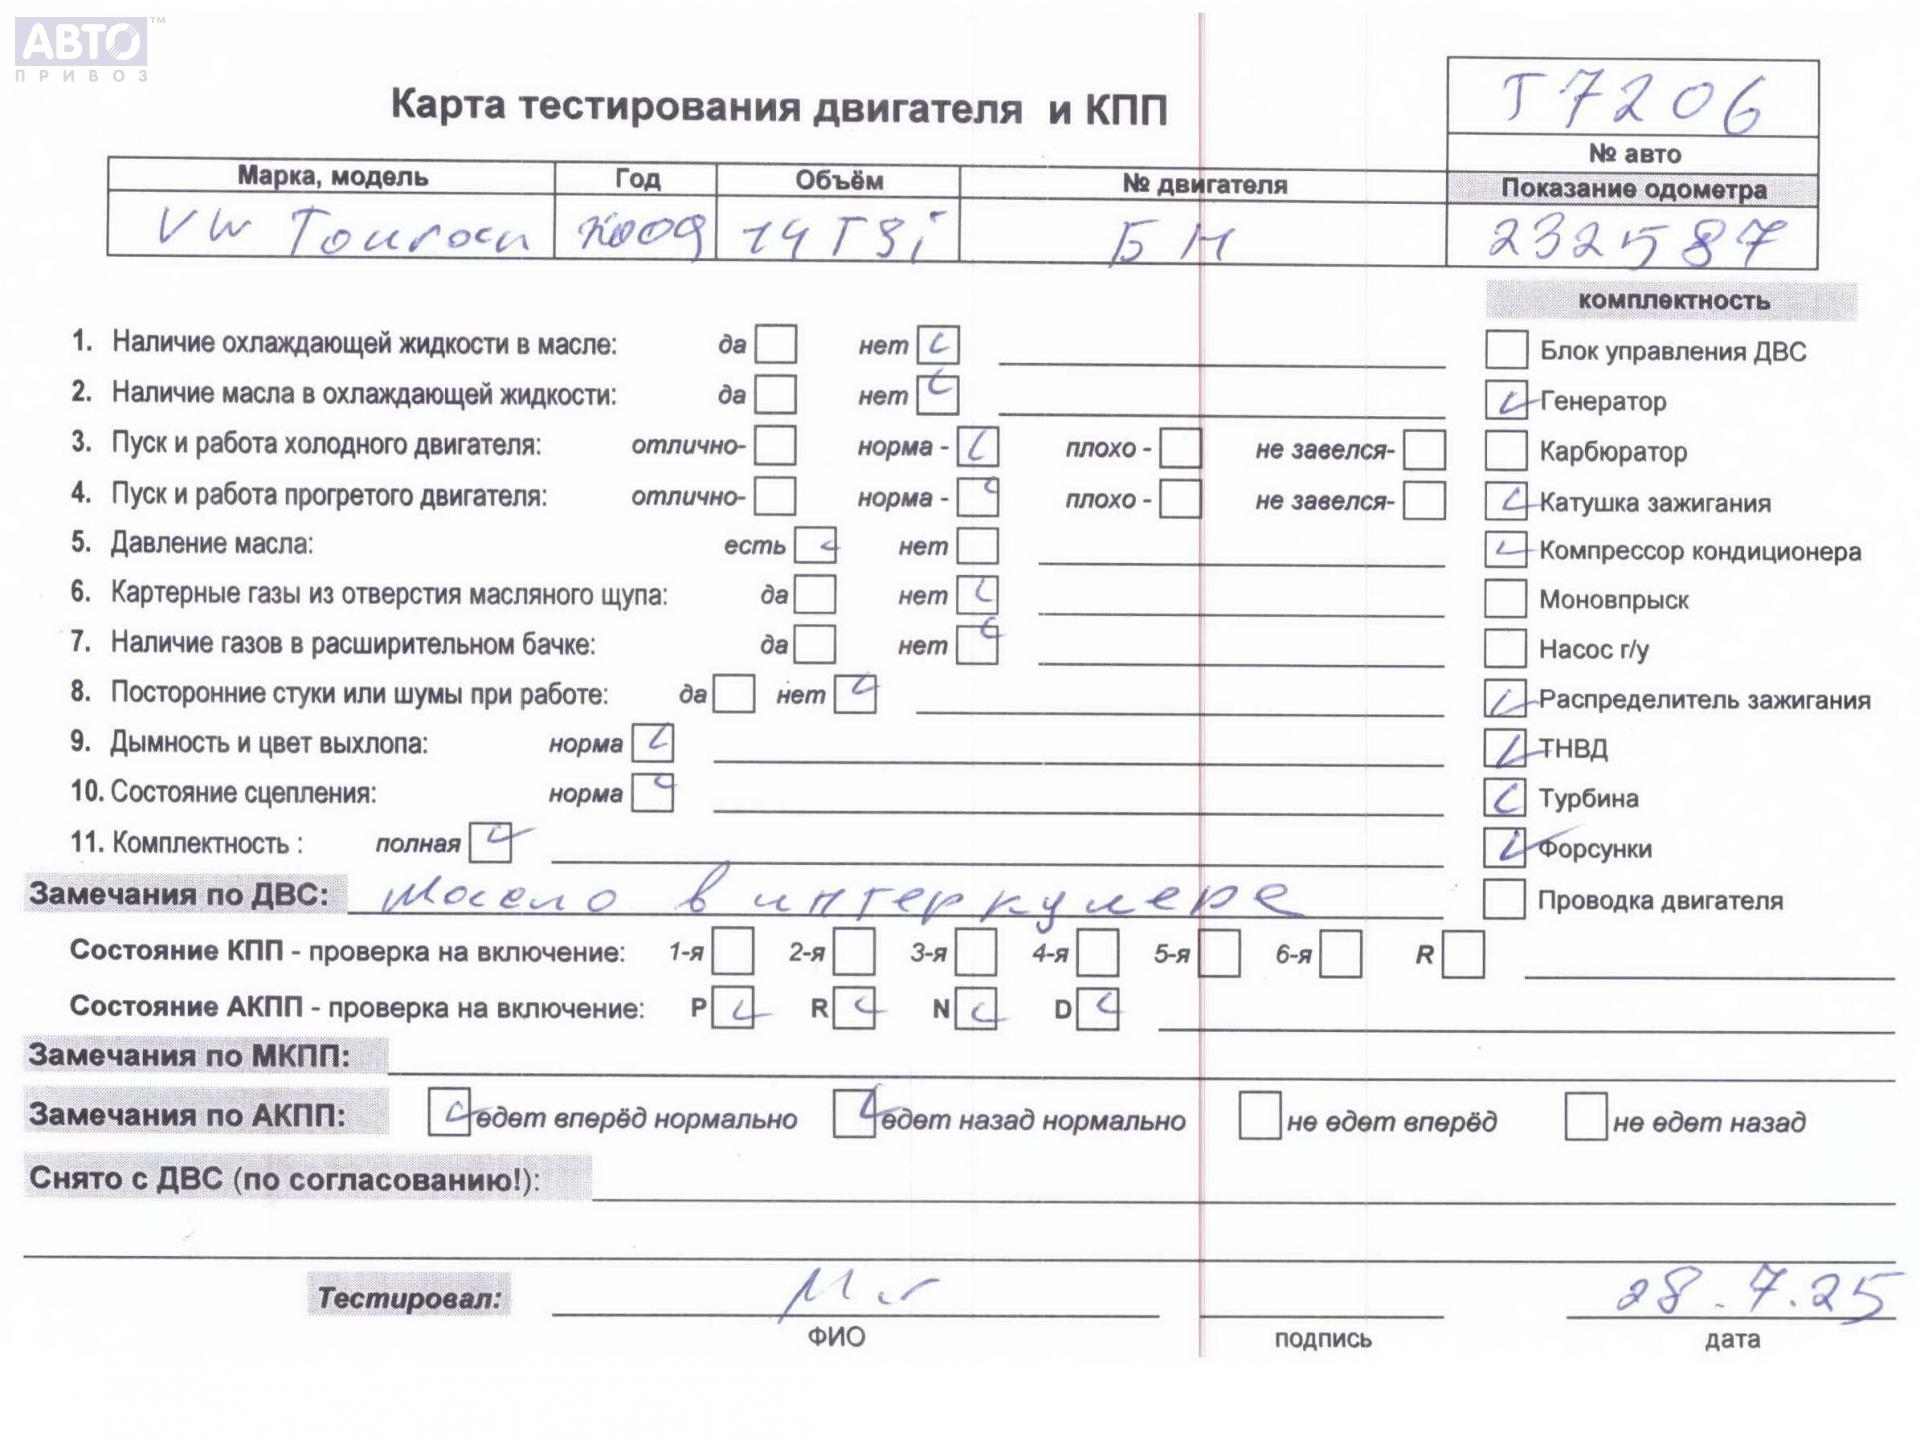 АВТО™
ПРИВОЗ
Карта тестирования двигателя и КПП
Т7206
№ авто
Марка, модель Год Объём № двигателя Показание одометра
VW Touran 2009 14TSi БН 232587
комплектность
1. Наличие охлаждающей жидкости в масле: да нет Блок управления ДВС
2. Наличие масла в охлаждающей жидкости: да нет Генератор
3. Пуск и работа холодного двигателя: отлично- норма - плохо - не завелся- Карбюратор
4. Пуск и работа прогретого двигателя: отлично- норма - плохо - не завелся- Катушка зажигания
5. Давление масла: есть нет Компрессор кондиционера
6. Картерные газы из отверстия масляного щупа: да нет Моновпрыск
7. Наличие газов в расширительном бачке: да нет Насос г/у
8. Посторонние стуки или шумы при работе: да нет Распределитель зажигания
9. Дымность и цвет выхлопа: норма ТНВД
10. Состояние сцепления: норма Турбина
11. Комплектность : полная Форсунки
Замечания по ДВС: Масло в интеркулере Проводка двигателя
Состояние КПП - проверка на включение: 1-я 2-я 3-я 4-я 5-я 6-я R
Состояние АКПП - проверка на включение: P R N D
Замечания по МКПП:
Замечания по АКПП: едет вперёд нормально едет назад нормально не едет вперёд не едет назад
Снято с ДВС (по согласованию!):
Тестировал: 28.7.25
ФИО подпись дата